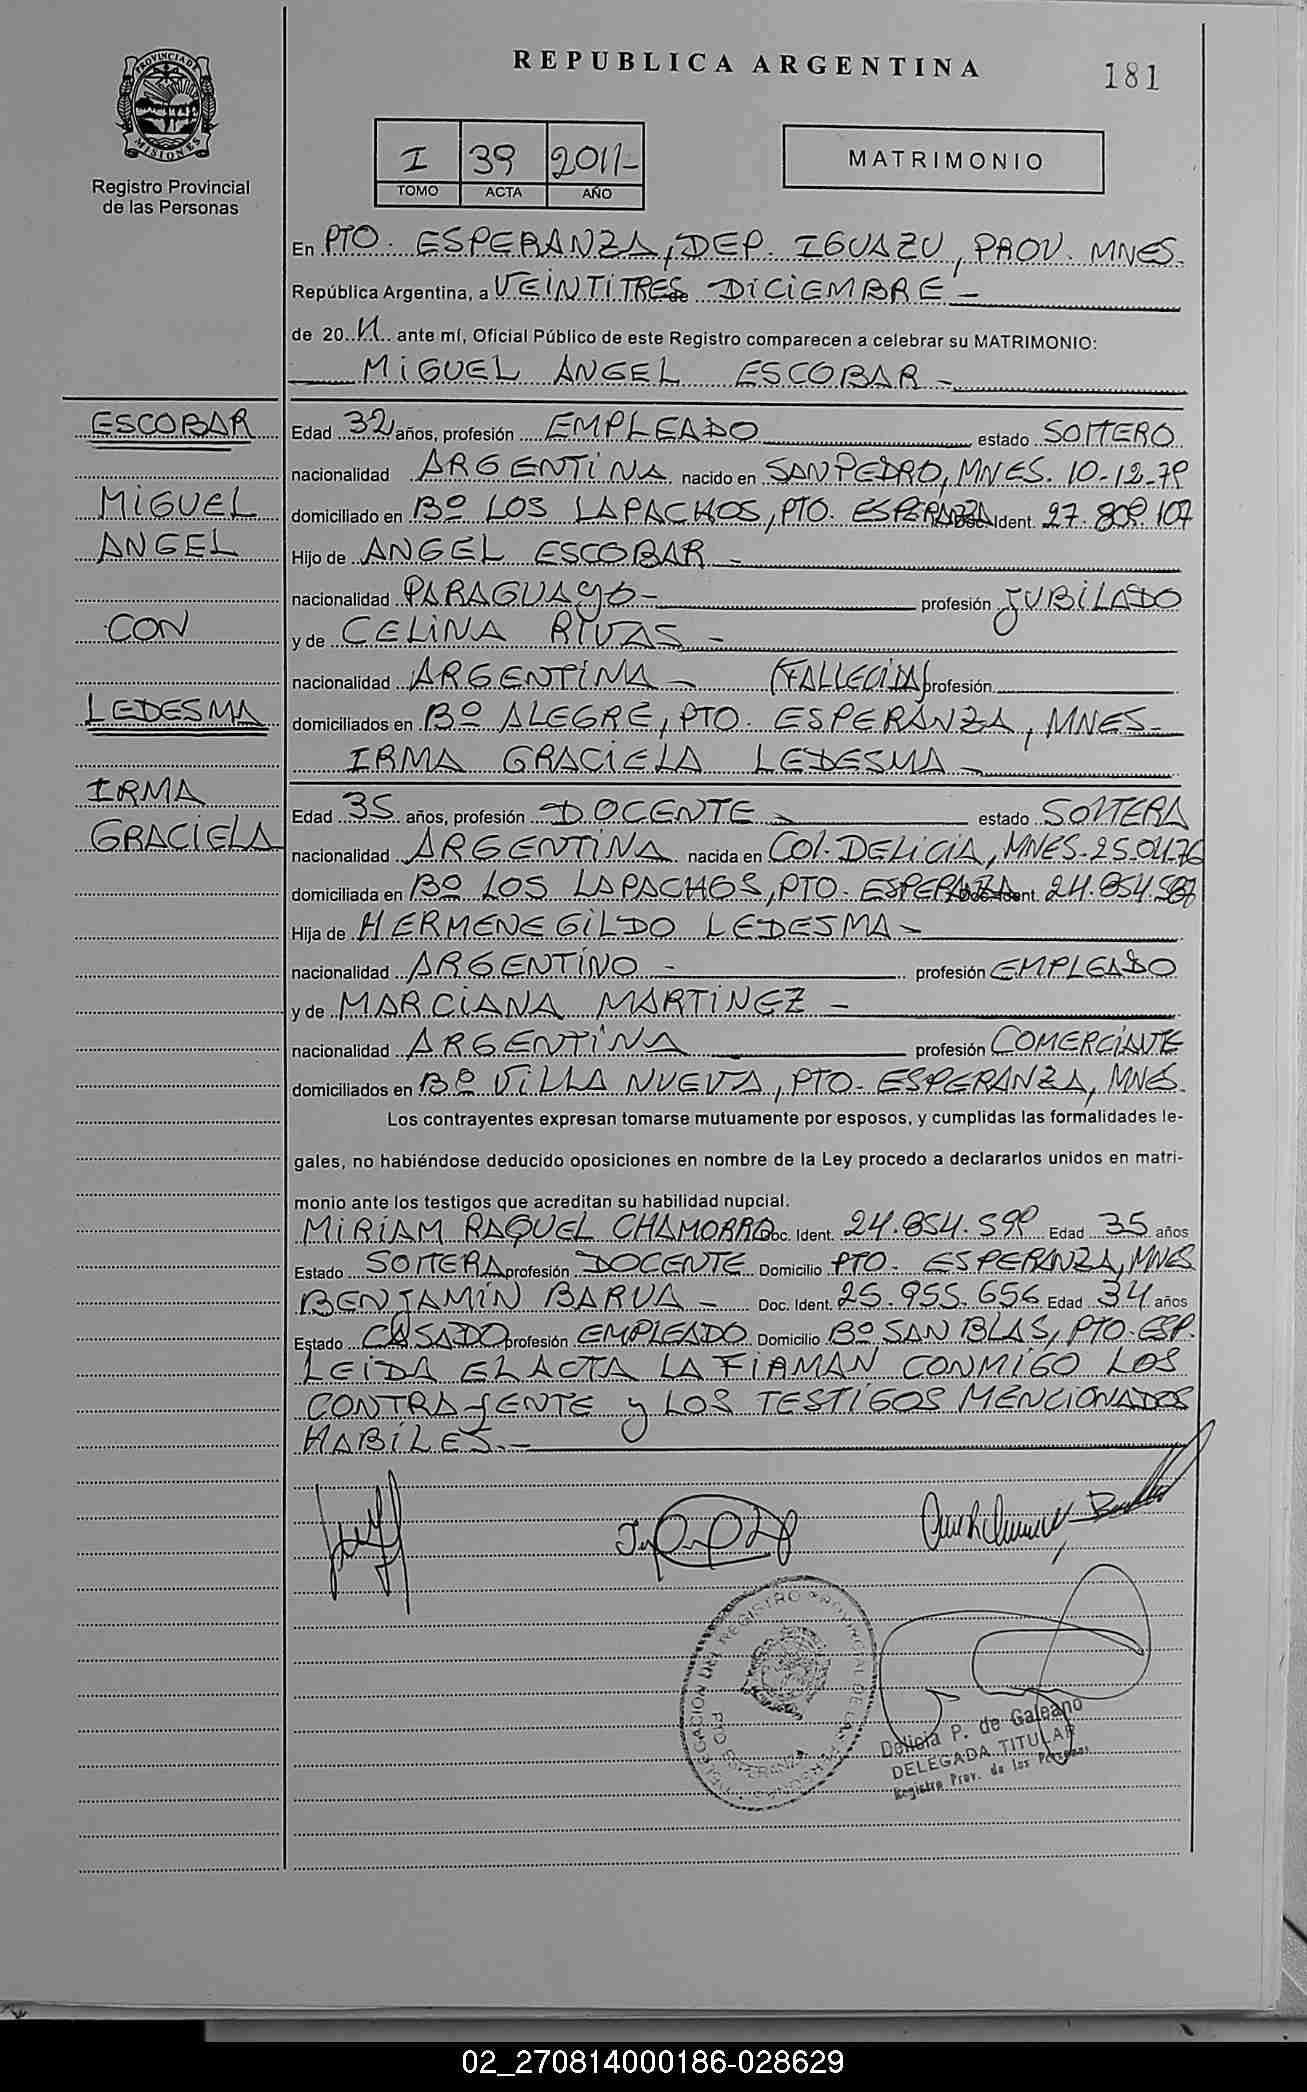 REPUBLICA ARGENTINA
181
PROVINCIA DE MISIONES
Registro Provincial
de las Personas
I 39 2011-
TOMO ACTA AÑO
MATRIMONIO
En PTO. ESPERANZA, DEP. IGUAZU, PROV. MNES.
República Argentina, a VEINTITRES de DICIEMBRE -
de 20 11 ante mí, Oficial Público de este Registro comparecen a celebrar su MATRIMONIO:
MIGUEL ANGEL ESCOBAR -
ESCOBAR
MIGUEL
ANGEL
CON
LEDESMA
IRMA
GRACIELA
Edad 32 años, profesión EMPLEADO estado SOLTERO
nacionalidad ARGENTINA nacido en SAN PEDRO, MNES. 10-12-79
domiciliado en Bº LOS LAPACHOS, PTO. ESPERANZA Doc. Ident. 27.809.107
Hijo de ANGEL ESCOBAR -
nacionalidad PARAGUAYO - profesión JUBILADO
y de CELINA RIVAS -
nacionalidad ARGENTINA - (FALLECIDA) profesión
domiciliados en Bº ALEGRE, PTO. ESPERANZA, MNES-
IRMA GRACIELA LEDESMA -
Edad 35 años, profesión DOCENTE - estado SOLTERA
nacionalidad ARGENTINA nacida en COL. DELICIA, MNES-25-04-76
domiciliada en Bº LOS LAPACHOS, PTO. ESPERANZA Doc. Ident. 24.854.587
Hija de HERMENEGILDO LEDESMA -
nacionalidad ARGENTINO - profesión EMPLEADO
y de MARCIANA MARTINEZ -
nacionalidad ARGENTINA profesión COMERCIANTE
domiciliados en Bº VILLA NUEVA, PTO. ESPERANZA, MNES.
Los contrayentes expresan tomarse mutuamente por esposos, y cumplidas las formalidades le-
gales, no habiéndose deducido oposiciones en nombre de la Ley procedo a declararlos unidos en matri-
monio ante los testigos que acreditan su habilidad nupcial.
MIRIAM RAQUEL CHAMORRO Doc. Ident. 24.854.599 Edad 35 años
Estado SOLTERA profesión DOCENTE Domicilio PTO. ESPERANZA, MNES
BENJAMIN BARUA - Doc. Ident. 25.955.656 Edad 34 años
Estado CASADO profesión EMPLEADO Domicilio Bº SAN BLAS, PTO-ESP.
LEIDA EL ACTA LA FIRMAN CONMIGO LOS
CONTRAYENTE y LOS TESTIGOS MENCIONADOS
HABILES.-
DEL REGISTRO PROVINCIAL DE LAS PERSONAS
PTO ESPERANZA
Delicia P. de Galeano
DELEGADA TITULAR
Registro Prov. de las Personas
02_270814000186-028629